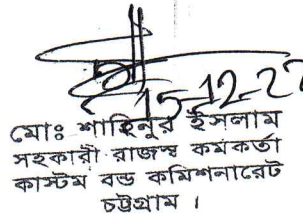 15-12-22
মোঃ শাহিনুর ইসলাম
সহকারী রাজস্ব কর্মকর্তা
কাস্টম বন্ড কমিশনারেট
চট্টগ্রাম ।